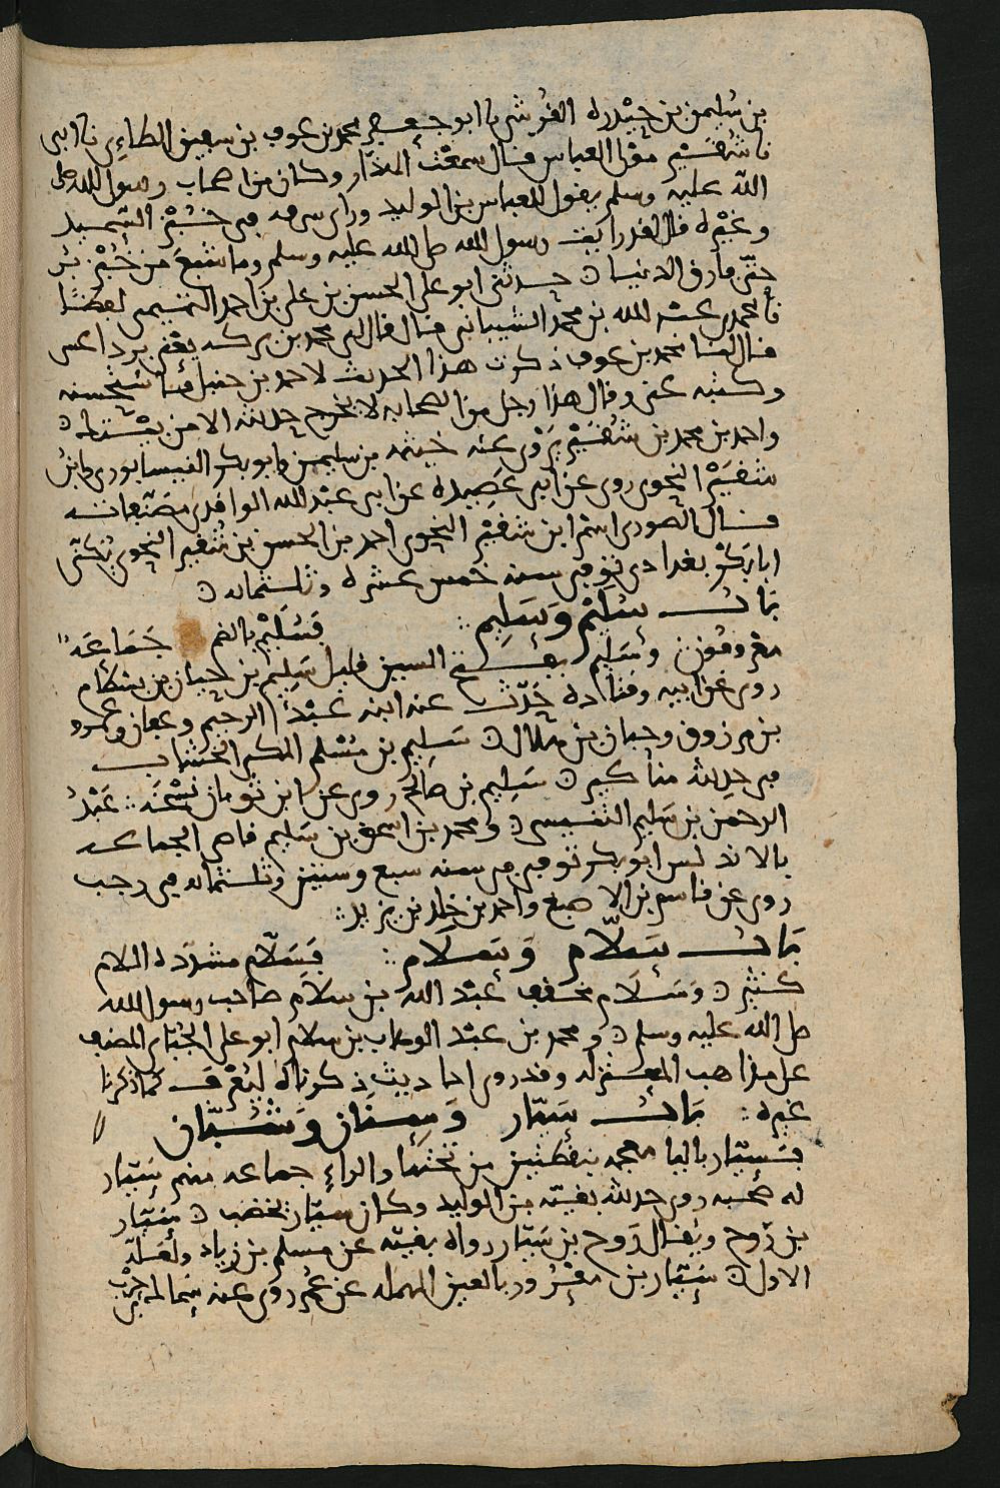 بن سُليمن بن حَيْدره الفُرشي نا ابو جعفر محمد بن عوف بن سفين الطاءِي نا ابي
نا شُقَيْر مولى العباس قال سمعْت المدّار وكان من اصحاب رسول الله صلى
الله عليه وسلم يقول للعباس بن الوليد وراى سرفه في خُبْز السَّميد
وغيْره قال لقد رايت رسول الله صلى الله عليه وسلم وما شبعَ من خُبْز بُر
حتّى فارق الدنيا ن حدثني ابو على الحسن بن علي بن احمد التميمي لفظًا
نا محمد بن عبْد الله بن محمد الشيباني قال قال لي محمد بن بركه يعْني برداعس
قال لنا محمد بن عوف ذكرت هذا الحديث لاحمد بن حنبل فاسْتحسنه
وكتبه عني وقال هذا رجل من الصحابه لا يخرج حديثه الا من بيْت
واحمد بن محمد بن شُقَيْر يَرْوي عنه خيثمه بن سليمن وابو بكر النيسابوري وابن
شقيَرْ النحوي روى عن ابي عَصِيده عن ابي عبْد الله الواقدي مصنّفاته
قال الصوري اسْم ابن شقيْر النحوي احمد بن الحسن بن شُقير النحوي يُكنّى
ابا بَكْر بغدادي توفي سنه خَمس عشْره وثلثمائه ن
بَابُ سُلَيْم وَسَلِيم فَسُلَيْم بالضم جَمَاعَه
معْروفون وسَلِيم بفتح السين قليل سَلِيم بن حَيان بن بسْطام
روى عن ابيه وقتاده حَدّث عنه ابنه عبْدُ الرحيم وعفان وعمرو
بن مرزوق وحبان بن هلال ن سَلِيم بن مسْلم المكي الخشّاب
في حديثه مناكير ن سَلِيم بن صالح روى عن ابن ثوبان نسْخَه عَبْدُ
الرحمن بن سَليم التنيسي ن ومحمد بن اسحق بن سَليم قاضي الجماعه
بالاندلس ابو بكر توفي في سنه سبع وستين وثلثمائه في رجب
روى عن قاسم بن الاصبغ واحمد بن خلد بن يزيد
بَابُ سَلّام وَسَلَام فَسَلّام مشدّده اللام
كثيْر ن وَسَلَام مخفف عَبْد الله بن سلَام صاحب رسول الله
صلى الله عليه وسلم ن ومحمد بن عبْد الوهاب بن سلَام ابو على الجُبّاءي المصنف
على مذاهب المعتزله وقد روى احاديث ذكرناه ليُعْرف كما ذكرنا
غيره بَابُ سَيّار وَسِنَان وَشَبّان
فسَيّار باليا معجمه بنقْطتين من تحْتها والراء جماعه منهم سَيّار
له صحبه روى حديثه بقيّه بن الوليد وكان سيّار يخضب ن سَيّار
بن رَوح ويُقال رَوح بن سَيّار رواه بقيّه عن مسلم بن زياد ولعَلّه
الاول ن سَيّار بن معْرُور بالعين المهمله عن عُمر روى عنه سِمَاك بن حَرْب